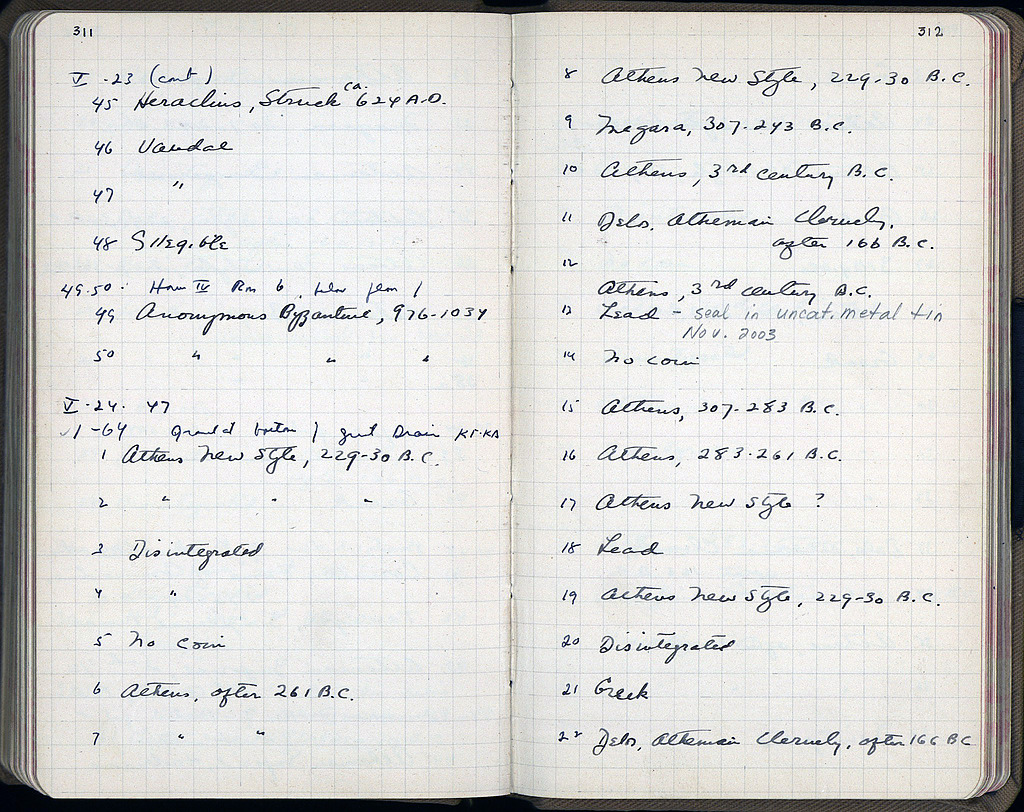 311
V-23 (cont)
45 Heraclius, Struck ca. 624 A.D.
46 Vandal
47 "
48 Illegible
49-50: House IV Rm 6, below floor 1
49 Anonymous Byzantine, 976-1034
50 " " "
V-24. 47
√1-64 bottom / great Drain
1 Athens New Style, 229-30 B.C.
2 " " "
3 Disintegrated
4 "
5 No coin
6 Athens, after 261 B.C.
7 " "
312
8 Athens New Style, 229-30 B.C.
9 Megara, 307-243 B.C.
10 Athens, 3rd century B.C.
11 Delos, Athenian Cleruchy,
after 166 B.C.
12
Athens, 3rd century B.C.
13 Lead - seal in uncat. metal tin
Nov. 2003
14 No coin
15 Athens, 307-283 B.C.
16 Athens, 283-261 B.C.
17 Athens New Style ?
18 Lead
19 Athens New Style, 229-30 B.C.
20 Disintegrated
21 Greek
22 Delos, Athenian Cleruchy, after 166 BC